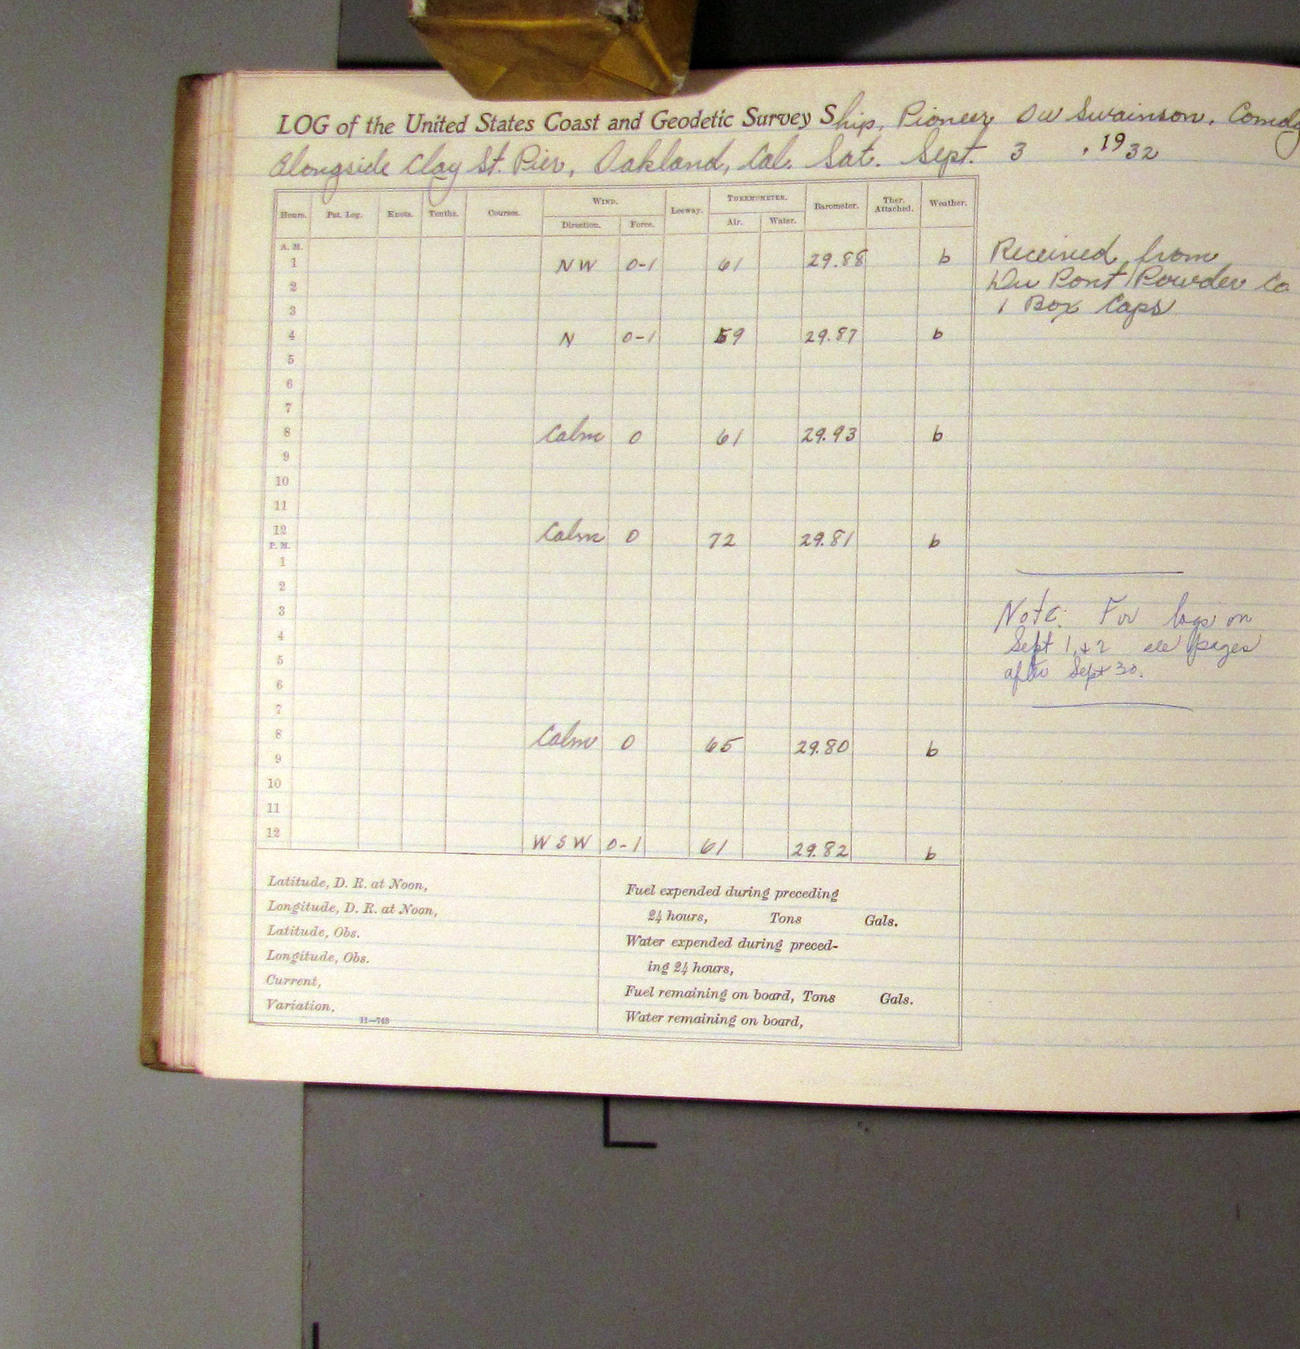 LOG of the United States Coast and Geodetic Survey Ship, Pioneer OW Swainson, Comdg
Alongside Clay St. Pier, Oakland, Cal. Sat. Sept. 3, 1932
Hours. Pat. Log. Knots. Tenths. Courses. WIND. Direction. Force. Leeway. THERMOMETER. Air. Water. Barometer. Ther. Attached. Weather.
A. M.
1 NW 0-1 61 29.88 b
2
3
4 N 0-1 59 29.87 b
5
6
7
8 Calm 0 61 29.93 b
9
10
11
12 Calm 0 72 29.81 b
P. M.
1
2
3
4
5
6
7
8 Calm 0 65 29.80 b
9
10
11
12 WSW 0-1 61 29.82 b
Received from
Du Pont Powder Co
1 Box Caps
Note: For logs on
Sept 1, & 2 see pages
after Sept 30.
Latitude, D. R. at Noon,
Longitude, D. R. at Noon,
Latitude, Obs.
Longitude, Obs.
Current,
Variation,
11—743
Fuel expended during preceding
24 hours, Tons Gals.
Water expended during preced-
ing 24 hours,
Fuel remaining on board, Tons Gals.
Water remaining on board,